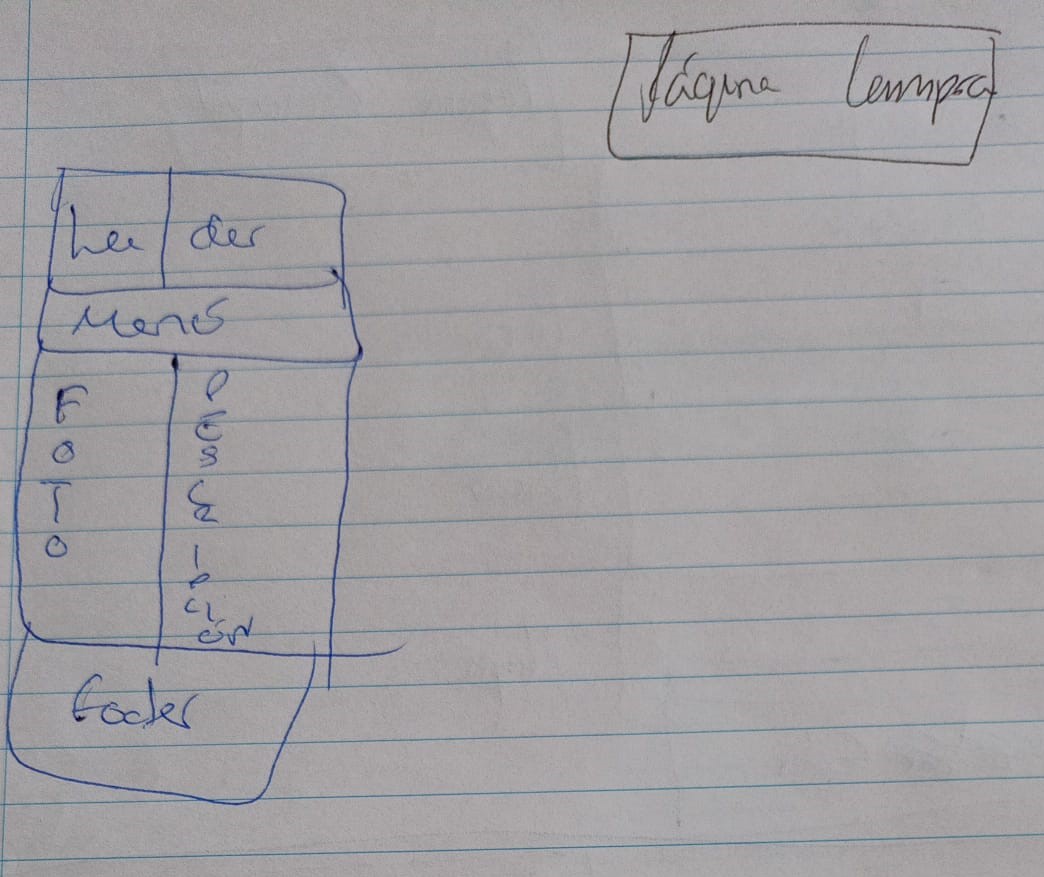 Página
hea der
Menú
F
O
T
O
D
E
S
C
R
I
P
CI
ÓN
Footer